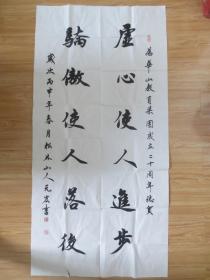 为华山教育集团成立二十周年志贺
虚心使人進步
驕傲使人落後
歲次丙申年春月松林山人元宏書